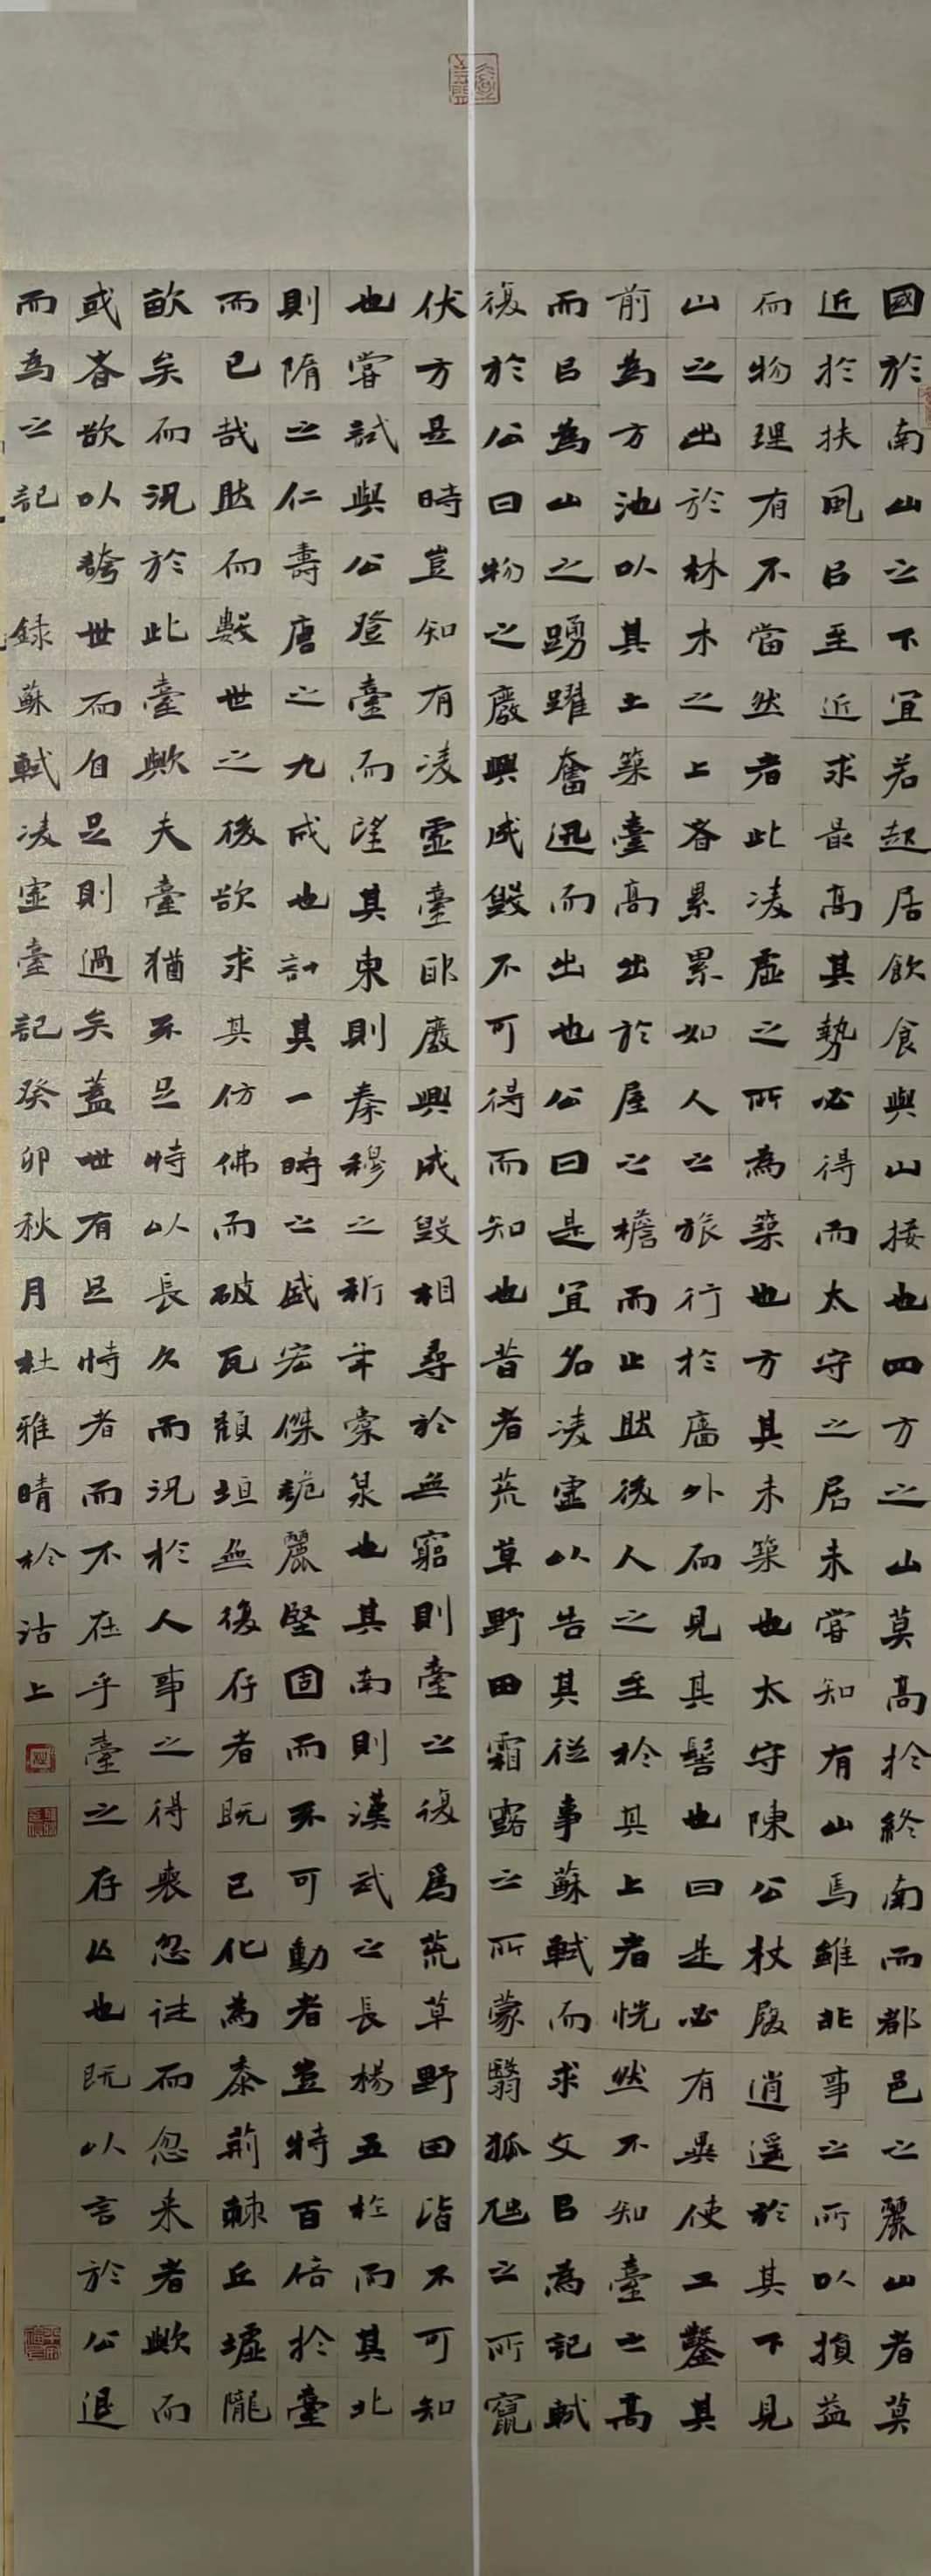 國於南山之下宜若起居飲食與山接也四方之山莫高於終南而都邑之麗山者莫
近於扶風㠯至近求最高其勢必得而太守之居未嘗知有山焉雖非事之所以損益
而物理有不當然者此凌虛之所為築也方其未築也太守陳公杖屨逍遥於其下見
山之出於林木之上者累累如人之旅行於牆外而見其髻也曰是必有異使工鑿其
前為方池以其土築臺高出於屋之檐而止然後人之至於其上者恍然不知臺之高
而㠯為山之踴躍奮迅而出也公曰是宜名凌虛以告其從事蘇軾而求文㠯為記軾
復於公曰物之廢興成毀不可得而知也昔者荒草野田霜露之所蒙翳狐虺之所竄
伏方是時豈知有凌虛臺耶廢興成毀相尋於無窮則臺之復爲荒草野田皆不可知
也嘗試與公登臺而望其東則秦穆之祈年橐泉也其南則漢武之長楊五柞而其北
則隋之仁壽唐之九成也計其一時之盛宏傑詭麗堅固而不可動者豈特百倍於臺
而已哉然而數世之後欲求其仿佛而破瓦頹垣無復存者既已化為黍荊棘丘墟隴
畝矣而況於此臺歟夫臺猶不足恃以長久而況於人事之得喪忽往而忽來者歟而
或者欲以誇世而自足則過矣蓋世有足恃者而不在乎臺之存亡也既以言於公退
而為之記 錄蘇軾凌虛臺記癸卯秋月杜雅晴於沽上